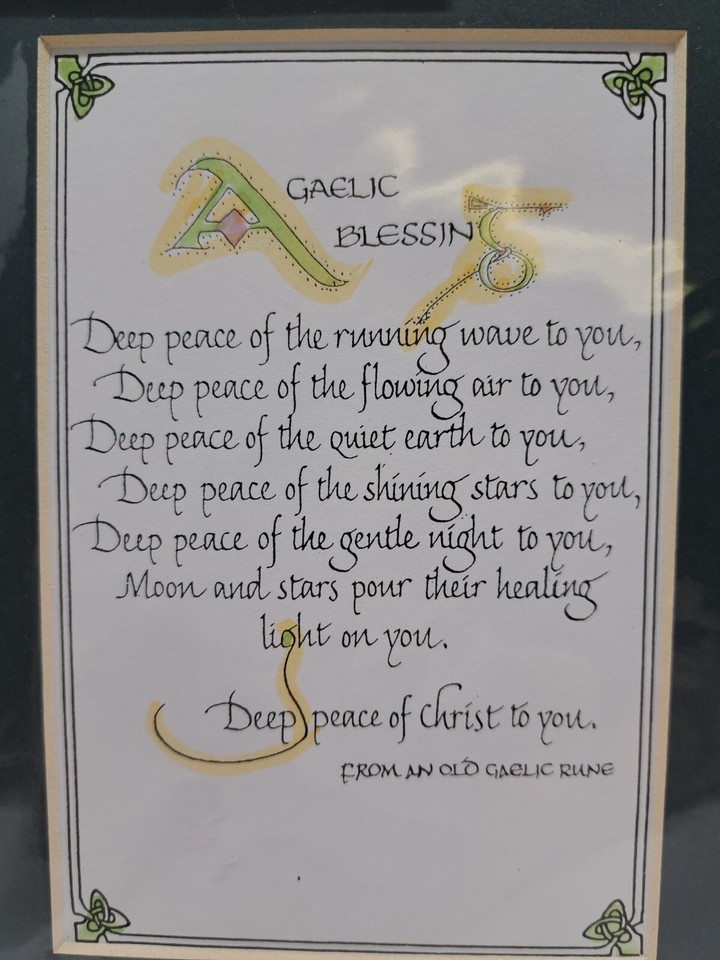 A GAELIC
BLESSING
Deep peace of the running wave to you,
Deep peace of the flowing air to you,
Deep peace of the quiet earth to you,
Deep peace of the shining stars to you,
Deep peace of the gentle night to you,
Moon and stars pour their healing
light on you.
Deep peace of Christ to you.
FROM AN OLD GAELIC RUNE